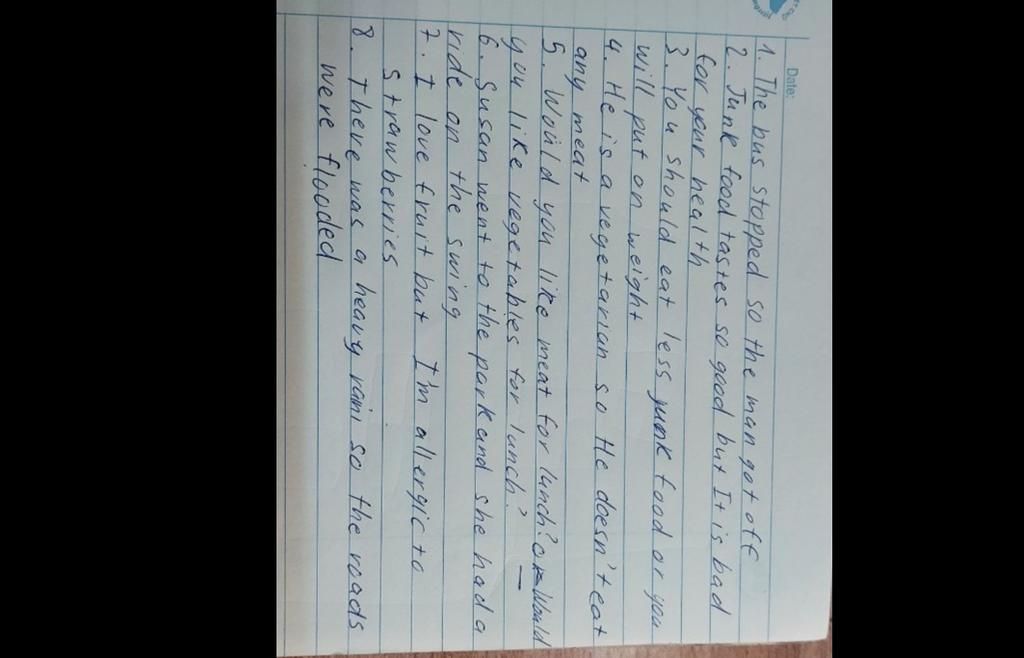 Date:
1. The bus stopped so the man got off
2. Junk food tastes so good but It is bad
for your health
3. You should eat less junk food or you
will put on weight
4. He is a vegetarian so He doesn't eat
any meat
5. Would you like meat for lunch? or Would
you like vegetables for lunch?
6. Susan went to the park and she had a
ride on the swing
7. I love fruit but I'm allergic to
strawberries
8. There was a heavy rain so the roads
were flooded